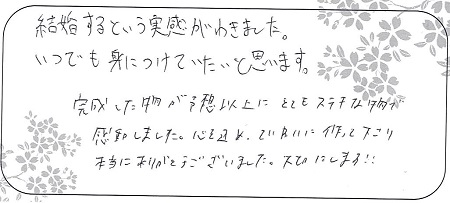 結婚するという実感がわきました。
いつでも身につけていたいと思います。
完成した物が予想以上にとてもステキな物で
感動しました。心を込め、ていねいに作って下さり
本当にありがとうございました。大切にします!!